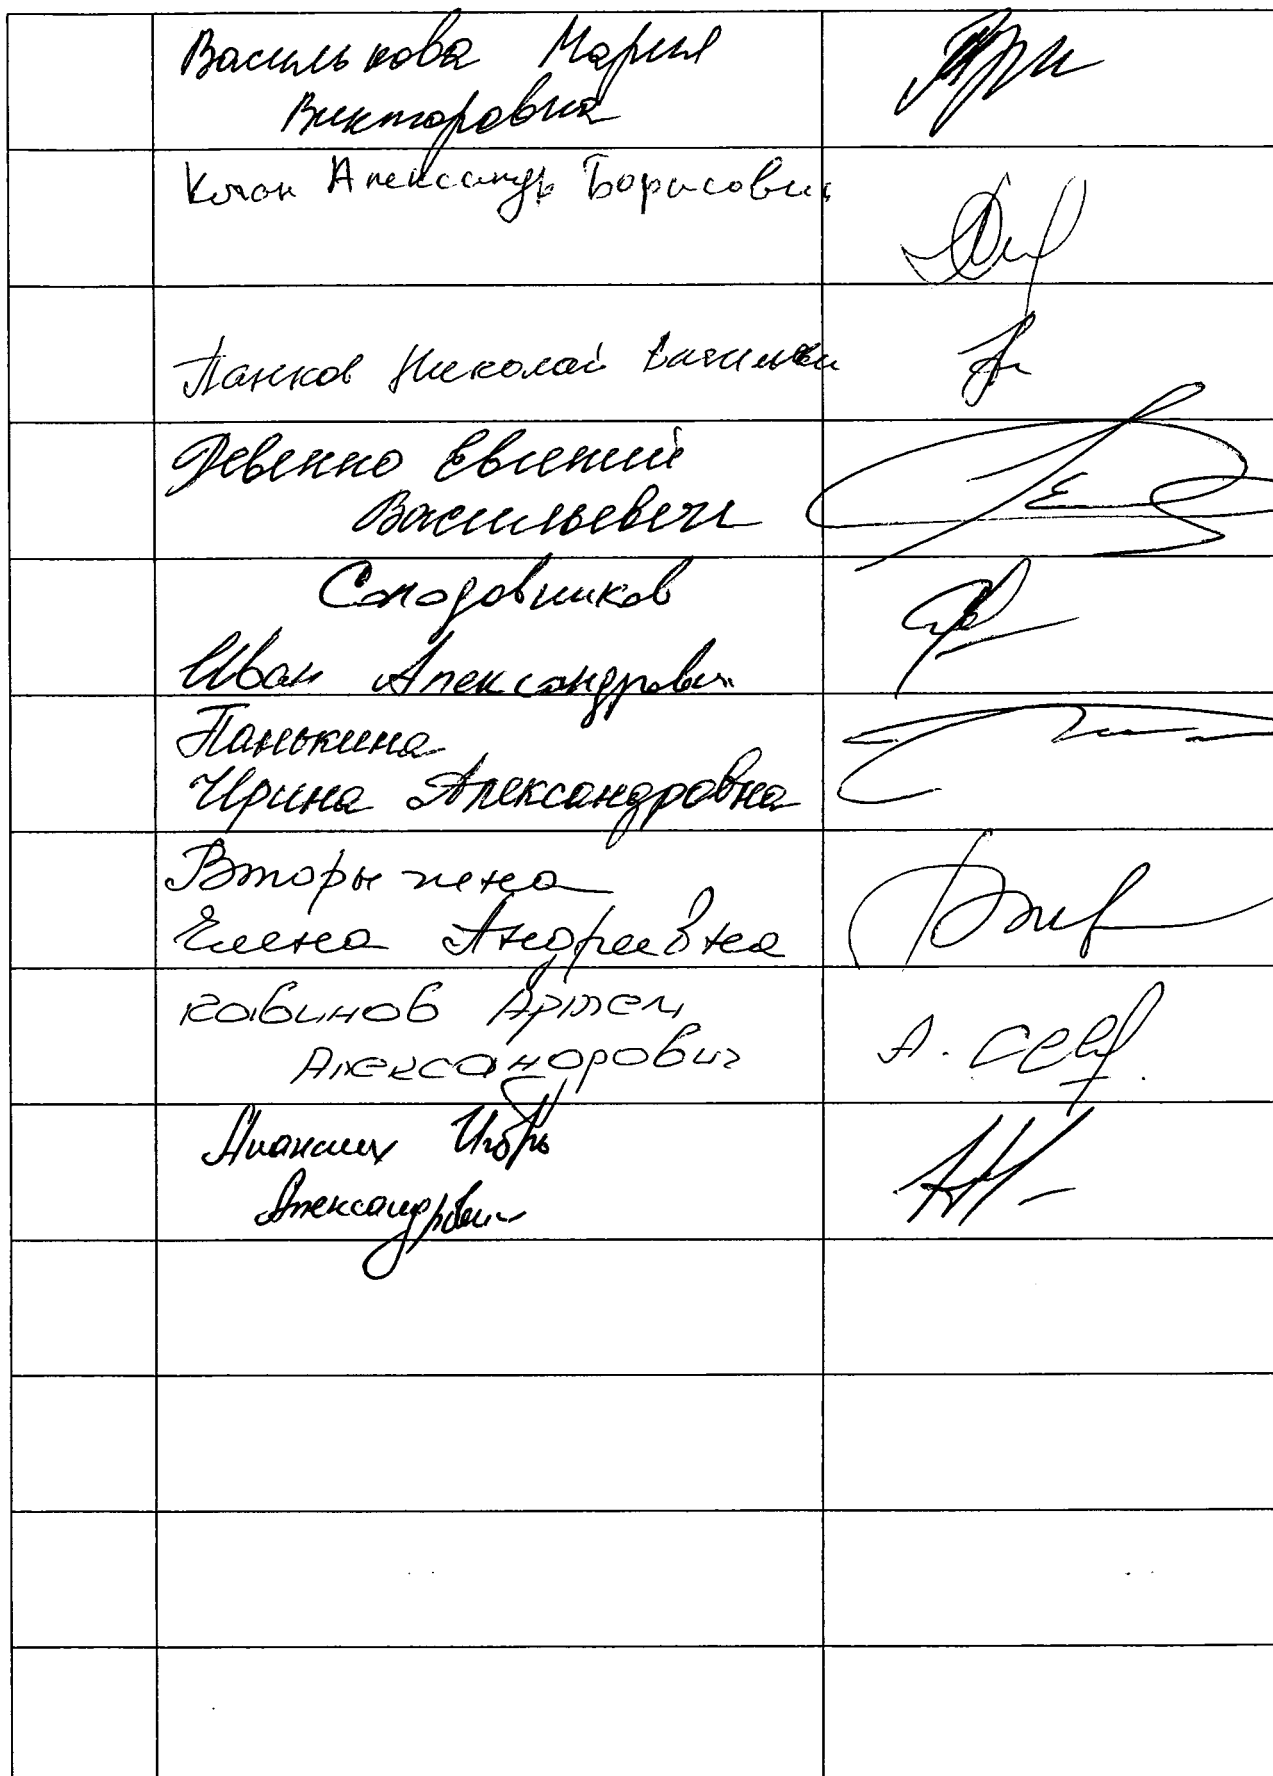 Василькова Мария
Викторовна
Александр Борисович
Панков Николай
Ревенко Евгений
Васильевич
Солодовников
Иван Александрович
Панькина
Ирина Александровна
Вторыгина
Елена Андреевна
Кавинов Артем
Александрович
Игорь
Александрович